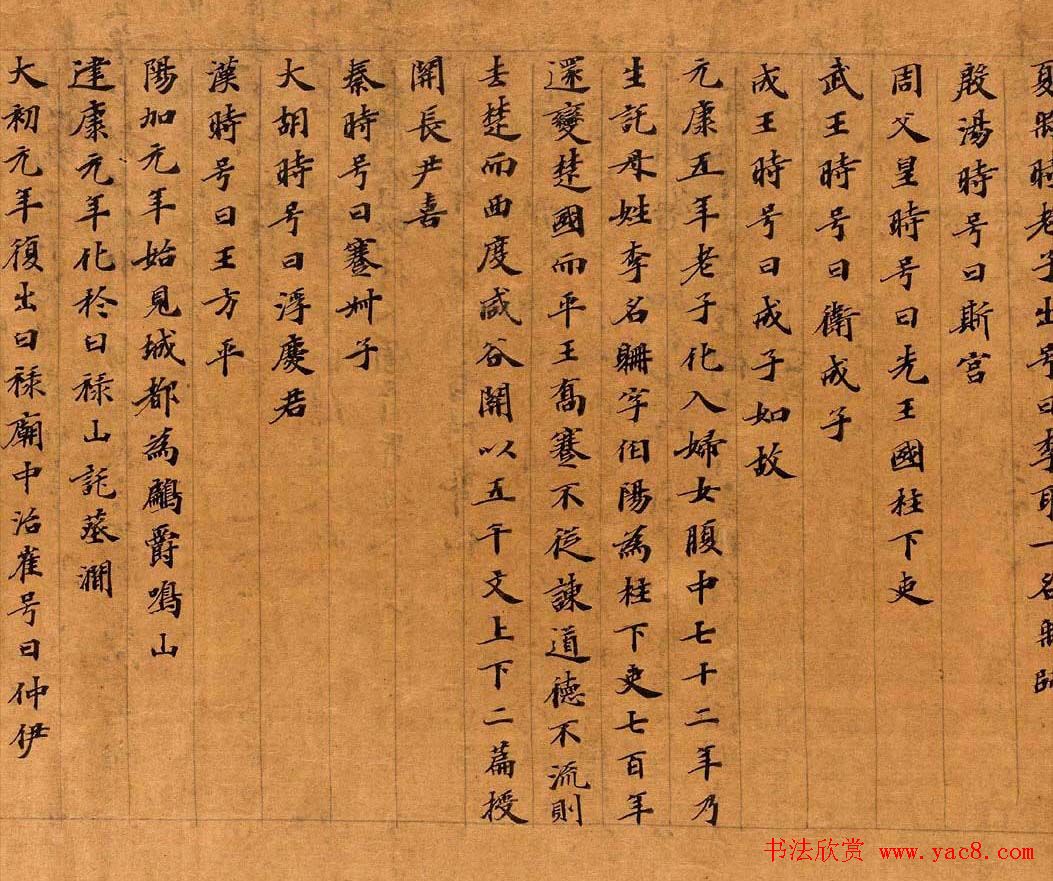 夏時老子出号曰李耳一名師
殷湯時号曰斯宮
周父皇時号曰先王國柱下吏
武王時号曰衛成子
成王時号曰成子如故
元康五年老子化入婦女腹中七十二年乃
生託母姓李名聃字伯陽為柱下吏七百年
還變楚國而平王喬蹇不從諫道德不流則
去楚而西度咸谷關以五千文上下二篇授
關長尹喜
秦時号曰蹇叔子
大胡時号曰浮慶君
漢時号曰王方平
陽加元年始見城都為鸕爵鳴山
建康元年化於白禄山託葬澗
大初元年復出白禄廟中治崔号曰仲伊
书法欣赏 www.yac8.com